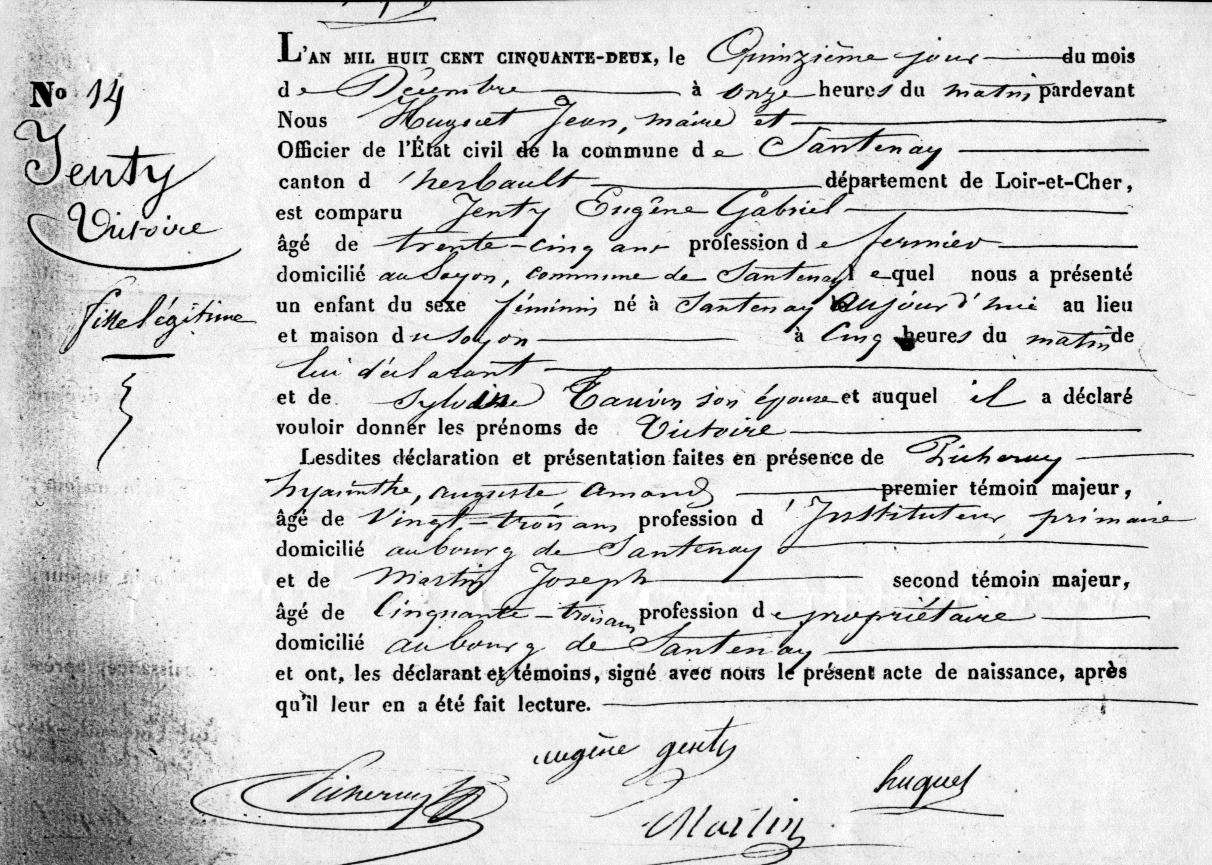 No 14
Jenty
Victoire
fille légitime
L'AN MIL HUIT CENT CINQUANTE-DEUX, le Quinzième jour du mois
de Décembre à onze heures du matin pardevant
Nous Huguet Jean, maire et
Officier de l'État civil de la commune de Santenay
canton d'herbault département de Loir-et-Cher,
est comparu Jenty Eugène Gabriel
âgé de trente-cinq ans profession de fermier
domicilié au Soyon, commune de Santenay lequel nous a présenté
un enfant du sexe féminin né à Santenay aujourd'hui au lieu
et maison du Soyon à Cinq heures du matin de
lui déclarant
et de Sylvine Tauvin son épouse et auquel il a déclaré
vouloir donner les prénoms de Victoire
Lesdites déclaration et présentation faites en présence de Pichery
hyacinthe, auguste amand premier témoin majeur,
âgé de Vingt-trois ans profession d'Instituteur primaire
domicilié au bourg de Santenay
et de Martin Joseph second témoin majeur,
âgé de Cinquante-trois ans profession de propriétaire
domicilié au bourg de Santenay
et ont, les déclarant et témoins, signé avec nous le présent acte de naissance, après
qu'il leur en a été fait lecture.
eugène genty
huguet
Martin